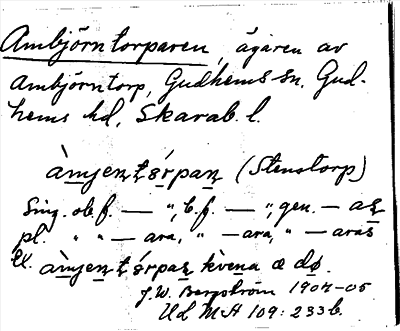 Ambjörntorparen, ägaren av
Ambjörntorp, Gudhems sn. Gud-
hems hd, Skarab. l.
(Stenstorp)
Sing. ob. f. — ", b. f. — ", gen. — as
pl. " " — ara, " — ara, " — aras
Ex. kvena æ dø.
J. W. Bergström 1904-05
Ud M A 109: 233 b.